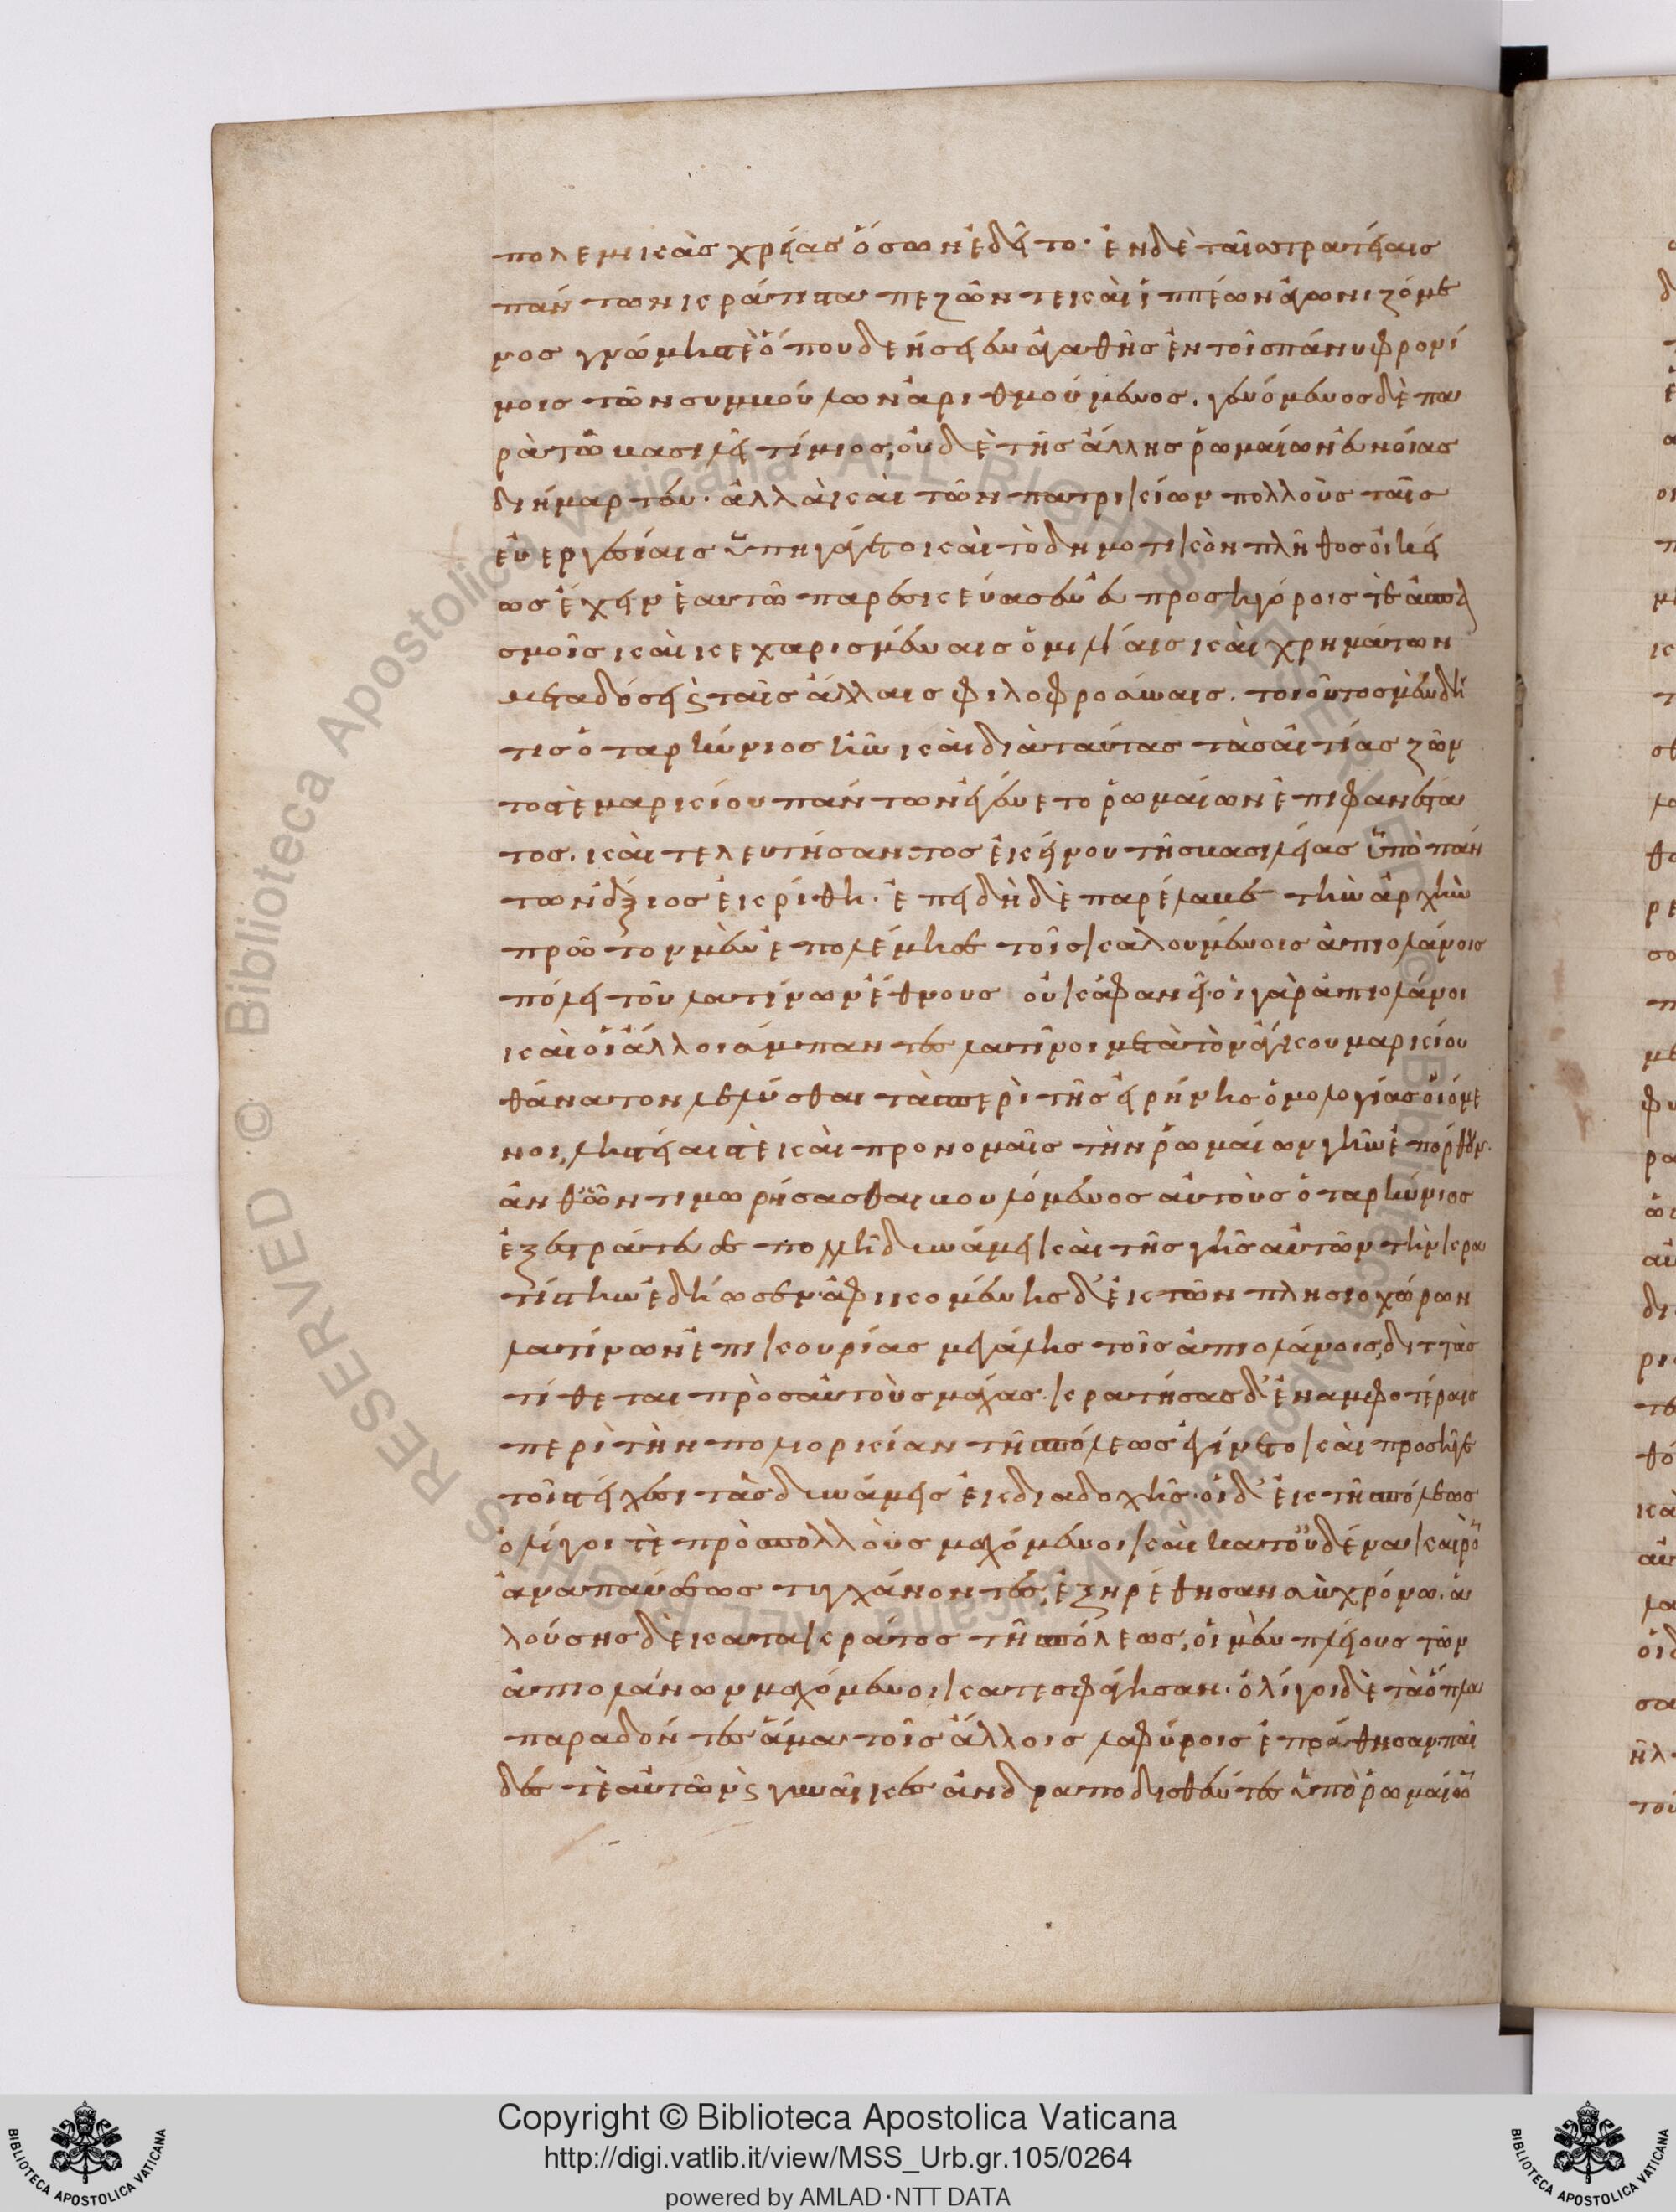 πολεμικὰς χρείας ὅσων ἐδεῖτο· ἐν δὲ ταῖς στρατείαις
πάντων κράτιστα πεζῶν τε καὶ ἱππέων ἀγωνιζόμε
νος γνώμης τε ὅπου δεήσειεν ἀγαθῆς ἐν τοῖς πάνυ φρονί
μοις τῶν συμβούλων ἀριθμούμενος. γενόμενος δὲ πα
ρὰ τῶ βασιλεῖ τίμιος, οὐδὲ τῆς ἄλλης ῥωμαίων εὐνοίας
διήμαρτεν· ἀλλὰ καὶ τῶν πατρικίων πολλοὺς ταῖς
εὐεργεσίαις ὑπηγάγετο καὶ τὸ δημοτικὸν πλῆθος οἰκεί
ως ἔχειν ἑαυτῶ παρεσκεύασεν εὐπροσηγόροις τε ἀσπα
σμοῖς καὶ κεχαρισμέναις ὁμιλίαις καὶ χρημάτων
μεταδόσει καὶ ταῖς ἄλλαις φιλοφροσύναις. τοιοῦτος μὲν δή
τις ὁ ταρκύνιος ἦν καὶ διὰ ταύτας τὰς αἰτίας ζῶν
τός τε μαρκίου πάντων ἐγένετο ῥωμαίων ἐπιφανέστα
τος. καὶ τελευτήσαντος ἐκείνου τῆς βασιλείας ὑπὸ πάν
των ἄξιος ἐκρίθη. ἐπειδὴ δὲ παρέλαβε τὴν ἀρχὴν
πρῶτον μὲν ἐπολέμησε τοῖς καλουμένοις ἀπιολάνοις
πόλει τοῦ λατίνων ἔθνους οὐκ ἀφανεῖ· οἱ γὰρ ἀπιολάνοι
καὶ οἱ ἄλλοι σύμπαντες λατῖνοι μετὰ τὸν ἄγκου μαρκίου
θάνατον λελύσθαι τὰ περὶ τῆς εἰρήνης ὁμολογίας οἰόμε
νοι, ληστείαις τε καὶ προνομαῖς τὴν ῥωμαίων γῆν ἐπόρθουν.
ἀνθ' ὧν τιμωρήσασθαι βουλόμενος αὐτοὺς ὁ ταρκύνιος
ἐξεστράτευσε πολλῆ δυνάμει καὶ τῆς γῆς αὐτῶν τὴν κρα
τίστην ἐδήωσεν· ἀφικομένης δ' ἐκ τῶν πλησιοχώρων
λατίνων ἐπικουρίας μεγάλης τοῖς ἀπιολάνοις, διττὰς
τίθεται πρὸς αὐτοὺς μάχας. κρατήσας δ' ἐν αμφοτέραις
περὶ τὴν πολιορκίαν τῆς πόλεως ἐγίνετο καὶ προσῆγε
τοῖς τείχεσι τὰς δυνάμεις ἐκ διαδοχῆς· οἱ δ' ἐκ τῆς πόλεως
ὀλίγοι τὲ πρὸς πολλοὺς μαχόμενοι καὶ κατ' οὐδένα καιρὸν
ἀναπαύσεως τυγχάνοντες, ἐξηρέθησαν σὺν χρόνω. ἁ
λούσης δὲ κατα κράτος τῆς πόλεως, οἱ μὲν πλείους τῶν
ἀπιολάνων μαχόμενοι κατεσφάγησαν. ὀλίγοι δὲ τὰ ὅπλα
παραδόντες ἅμα τοῖς ἄλλοις λαφύροις ἐπράθησαν παῖ
δές τε αὐτῶν καὶ γυναῖκες ἀνδραποδισθέντες ὑπὸ ῥωμαίων
Copyright © Biblioteca Apostolica Vaticana
http://digi.vatlib.it/view/MSS_Urb.gr.105/0264
powered by AMLAD·NTT DATA